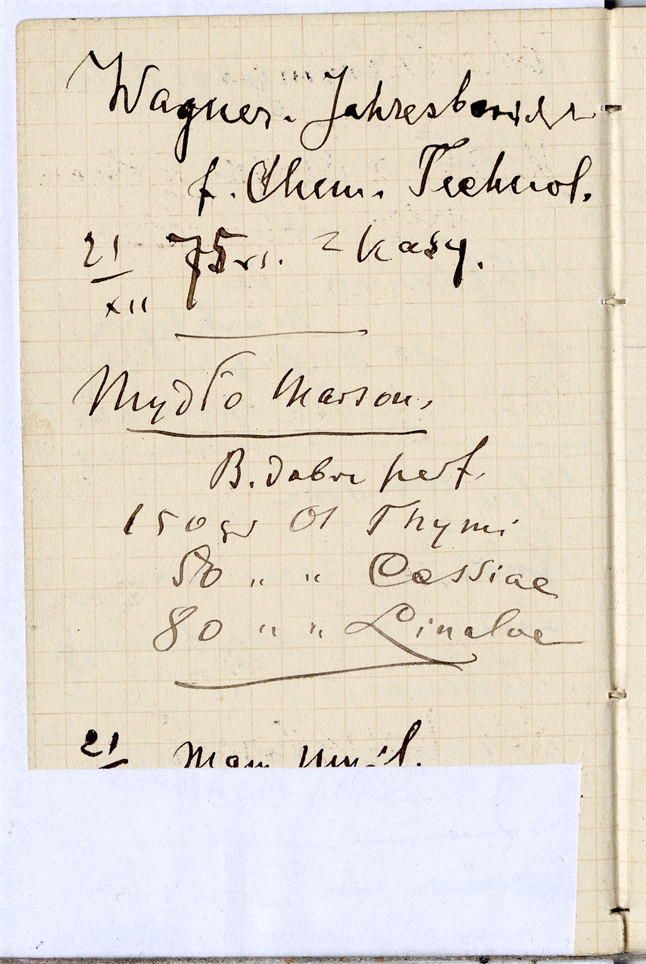 Wagner. Jahresbericht
f. Chem. Technol.
21/XII 75 rs. z kasy.
Mydło Marson.
B. dobre perf.
150 gr Ol Thymi
50 " " Cassiae
80 " " Linaloe
21